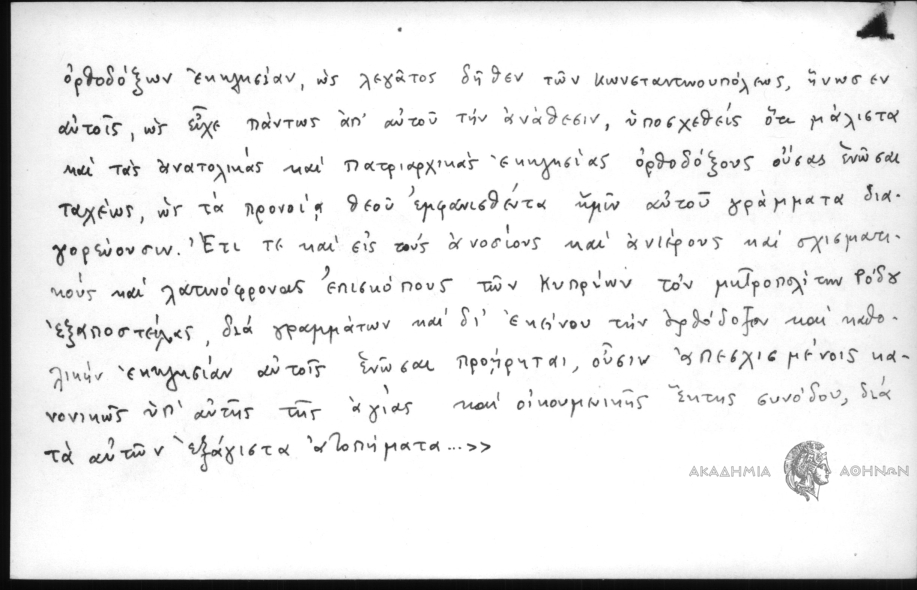 ὀρθοδόξων ἐκκλησίαν, ὡς λεγᾶτος δῆθεν τῶν Κωνσταντινουπόλεως, ἥνωσεν
αὐτοῖς, ὡς εἶχε πάντως ἀπ' αὐτοῦ τήν ἀνάθεσιν, ὑποσχεθείς ὅτι μάλιστα
καί τάς ἀνατολικάς καί πατριαρχικάς ἐκκλησίας ὀρθοδόξους οὔσας ἑνῶσαι
ταχέως, ὡς τά προνοίᾳ θεοῦ ἐμφανισθέντα ἡμῖν αὐτοῦ γράμματα δια-
γορεύουσιν. Ἔτι τε καί εἰς τούς ἀνοσίους καί ἀνιέρους καί σχισματι-
κούς καί λατινόφρονας ἐπισκόπους τῶν Κυπρίων τόν μητροπολίτην Ῥόδου
ἐξαποστείλας, διά γραμμάτων καί δι' ἐκείνου τήν ὀρθόδοξον καί καθο-
λικήν ἐκκλησίαν αὐτοῖς ἑνῶσαι προῄρηται, οὖσιν ἀπεσχισμένοις κα-
νονικῶς ὑπ' αὐτῆς τῆς ἁγίας καί οἰκουμενικῆς ἕκτης συνόδου, διά
τά αὐτῶν ἐξάγιστα ἀτοπήματα...>>
ΑΚΑΔΗΜΙΑ ΑΘΗΝΩΝ